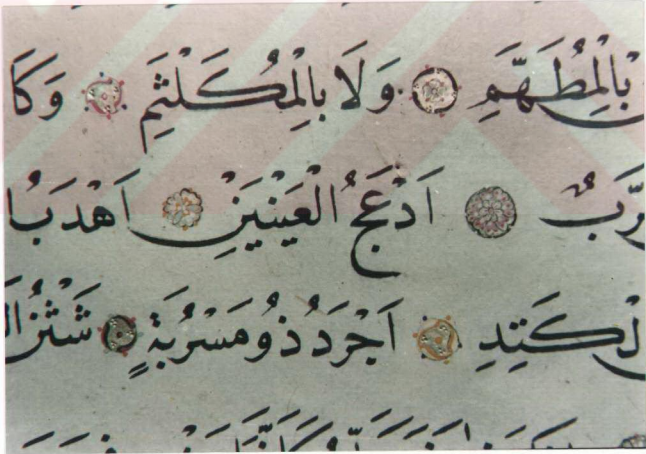 بِالْمُطَهَّمِ وَلَا بِالْمُكَلْثَمِ وَكَا
رَّبٌ اَدْعَجُ الْعَيْنَيْنِ اَهْدَبُ ا
لْكَتَدِ اَجْرَدُ ذُو مَسْرُبَةٍ شَثْنُ ال